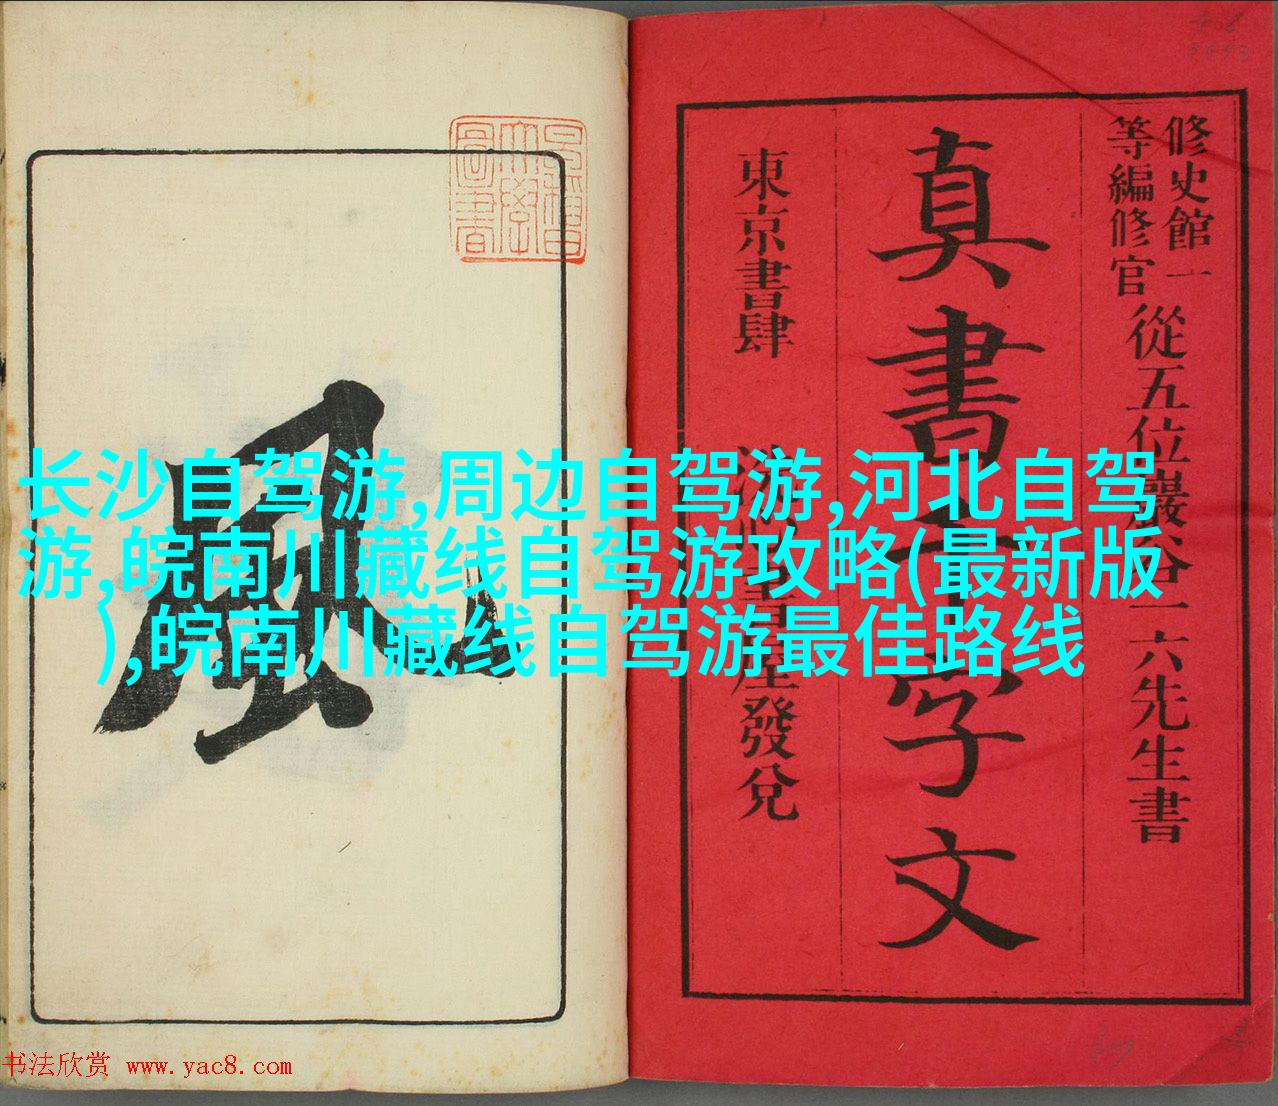 修史館一
等編修官
從五位巖谷一六先生書
真書千字文
東京書肆
發兌
風
长沙自驾游,周边自驾游,河北自驾
游,皖南川藏线自驾游攻略(最新版
),皖南川藏线自驾游最佳路线
书法欣赏 www.yac8.com